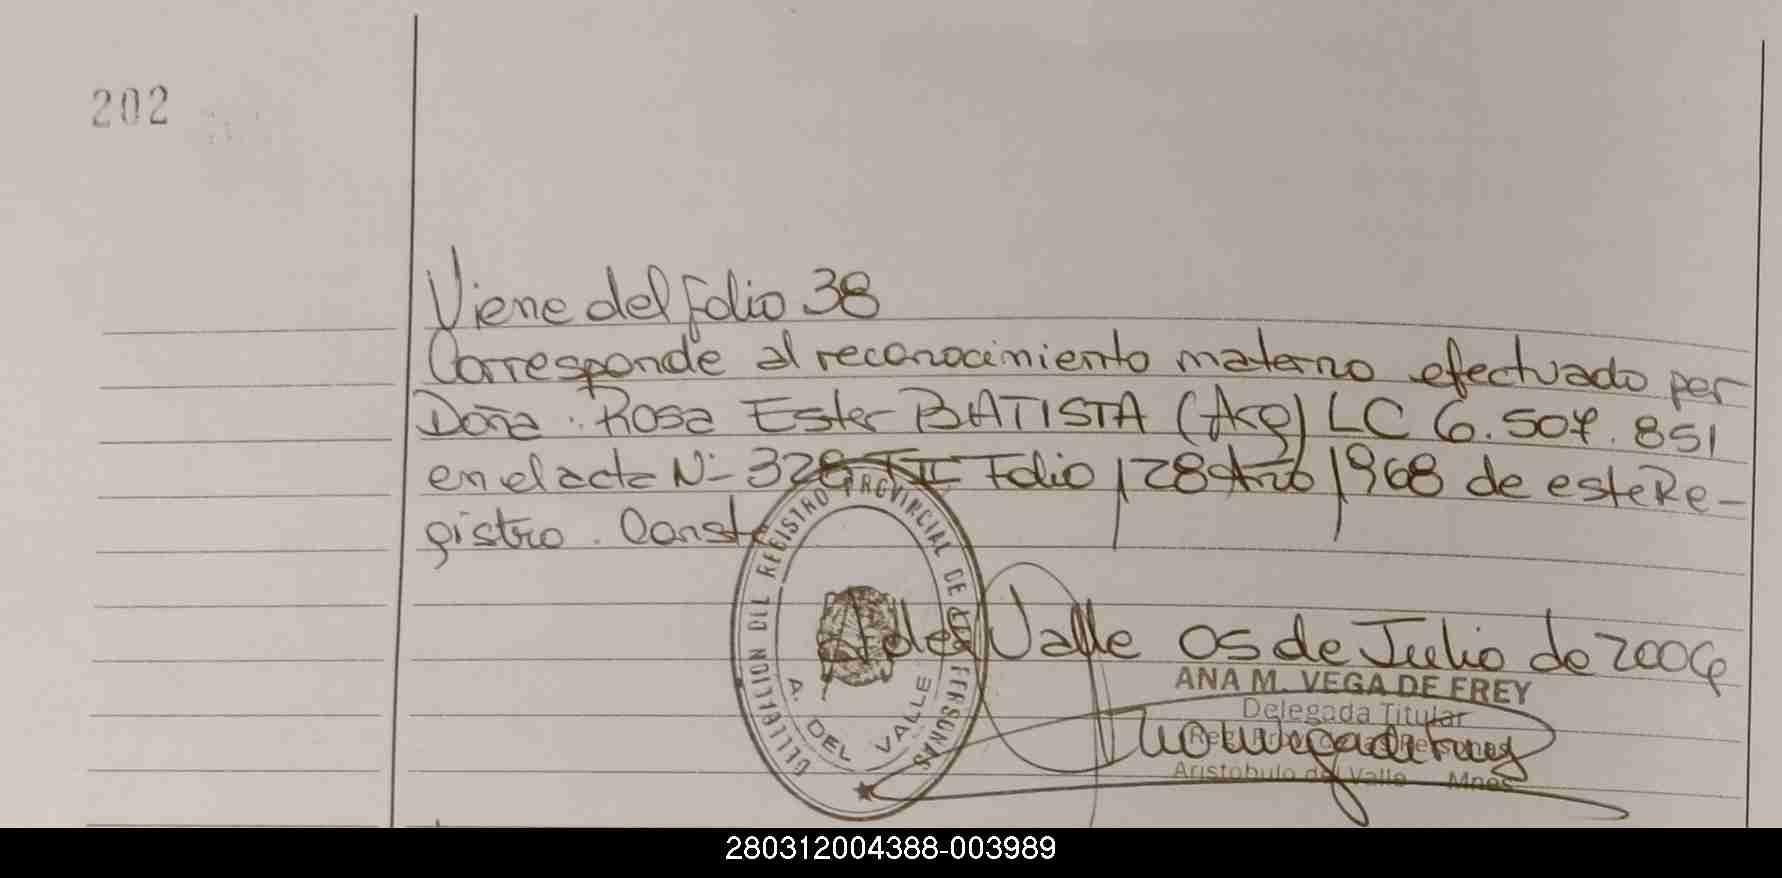 202
Viene del folio 38
Corresponde al reconocimiento materno efectuado por
Doña. Rosa Ester BATISTA (Arg) LC 6.504.851
en el acta Nº 328 TII Folio 128 Año 1968 de este Re-
gistro. Conste
DELEGACION DEL REGISTRO PROVINCIAL DE LAS PERSONAS
A. DEL VALLE
A del Valle 05 de Julio de 2004
ANA M. VEGA DE FREY
Delegada Titular
Aristobulo del Valle Mnes
280312004388-003989